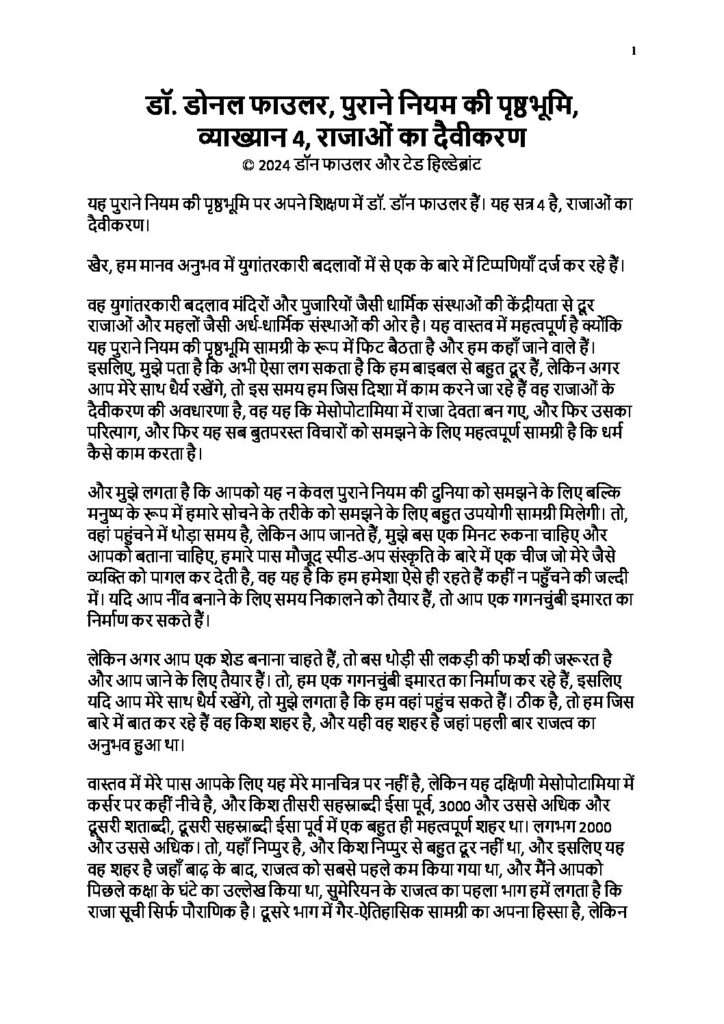 1
डॉ. डोनल फाउलर, पुराने नियम की पृष्ठभूमि,
व्याख्यान 4, राजाओं का दैवीकरण
© 2024 डॉन फाउलर और टेड हिल्डेब्रांट
यह पुराने नियम की पृष्ठभूमि पर अपने शिक्षण में डॉ. डॉन फाउलर हैं। यह सत्र 4 है, राजाओं का
दैवीकरण।
खैर, हम मानव अनुभव में युगांतरकारी बदलावों में से एक के बारे में टिप्पणियाँ दर्ज कर रहे हैं।
वह युगांतरकारी बदलाव मंदिरों और पुजारियों जैसी धार्मिक संस्थाओं की केंद्रीयता से दूर
राजाओं और महलों जैसी अर्ध-धार्मिक संस्थाओं की ओर है। यह वास्तव में महत्वपूर्ण है क्योंकि
यह पुराने नियम की पृष्ठभूमि सामग्री के रूप में फिट बैठता है और हम कहाँ जाने वाले हैं।
इसलिए, मुझे पता है कि अभी ऐसा लग सकता है कि हम बाइबल से बहुत दूर हैं, लेकिन अगर
आप मेरे साथ धैर्य रखेंगे, तो इस समय हम जिस दिशा में काम करने जा रहे हैं वह राजाओं के
दैवीकरण की अवधारणा है, वह यह कि मेसोपोटामिया में राजा देवता बन गए, और फिर उसका
परित्याग, और फिर यह सब बुतपरस्त विचारों को समझने के लिए महत्वपूर्ण सामग्री है कि धर्म
कैसे काम करता है।
और मुझे लगता है कि आपको यह न केवल पुराने नियम की दुनिया को समझने के लिए बल्कि
मनुष्य के रूप में हमारे सोचने के तरीके को समझने के लिए बहुत उपयोगी सामग्री मिलेगी। तो,
वहां पहुंचने में थोड़ा समय है, लेकिन आप जानते हैं, मुझे बस एक मिनट रुकना चाहिए और
आपको बताना चाहिए, हमारे पास मौजूद स्पीड-अप संस्कृति के बारे में एक चीज जो मेरे जैसे
व्यक्ति को पागल कर देती है, वह यह है कि हम हमेशा ऐसे ही रहते हैं कहीं न पहुँचने की जल्दी
में। यदि आप नींव बनाने के लिए समय निकालने को तैयार हैं, तो आप एक गगनचुंबी इमारत का
निर्माण कर सकते हैं।
लेकिन अगर आप एक शेड बनाना चाहते हैं, तो बस थोड़ी सी लकड़ी की फर्श की जरूरत है
और आप जाने के लिए तैयार हैं। तो, हम एक गगनचुंबी इमारत का निर्माण कर रहे हैं, इसलिए
यदि आप मेरे साथ धैर्य रखेंगे, तो मुझे लगता है कि हम वहां पहुंच सकते हैं। ठीक है, तो हम जिस
बारे में बात कर रहे हैं वह किश शहर है, और यही वह शहर है जहां पहली बार राजत्व का
अनुभव हुआ था।
वास्तव में मेरे पास आपके लिए यह मेरे मानचित्र पर नहीं है, लेकिन यह दक्षिणी मेसोपोटामिया में
कर्सर पर कहीं नीचे है, और किश तीसरी सहस्राब्दी ईसा पूर्व, 3000 और उससे अधिक और
दूसरी शताब्दी, दूसरी सहस्राब्दी ईसा पूर्व में एक बहुत ही महत्वपूर्ण शहर था। लगभग 2000
और उससे अधिक। तो, यहाँ निप्पुर है, और किश निप्पुर से बहुत दूर नहीं था, और इसलिए यह
वह शहर है जहाँ बाढ़ के बाद, राजत्व को सबसे पहले कम किया गया था, और मैंने आपको
पिछले कक्षा के घंटे का उल्लेख किया था, सुमेरियन के राजत्व का पहला भाग हमें लगता है कि
राजा सूची सिर्फ पौराणिक है। दूसरे भाग में गैर-ऐतिहासिक सामग्री का अपना हिस्सा है, लेकिन